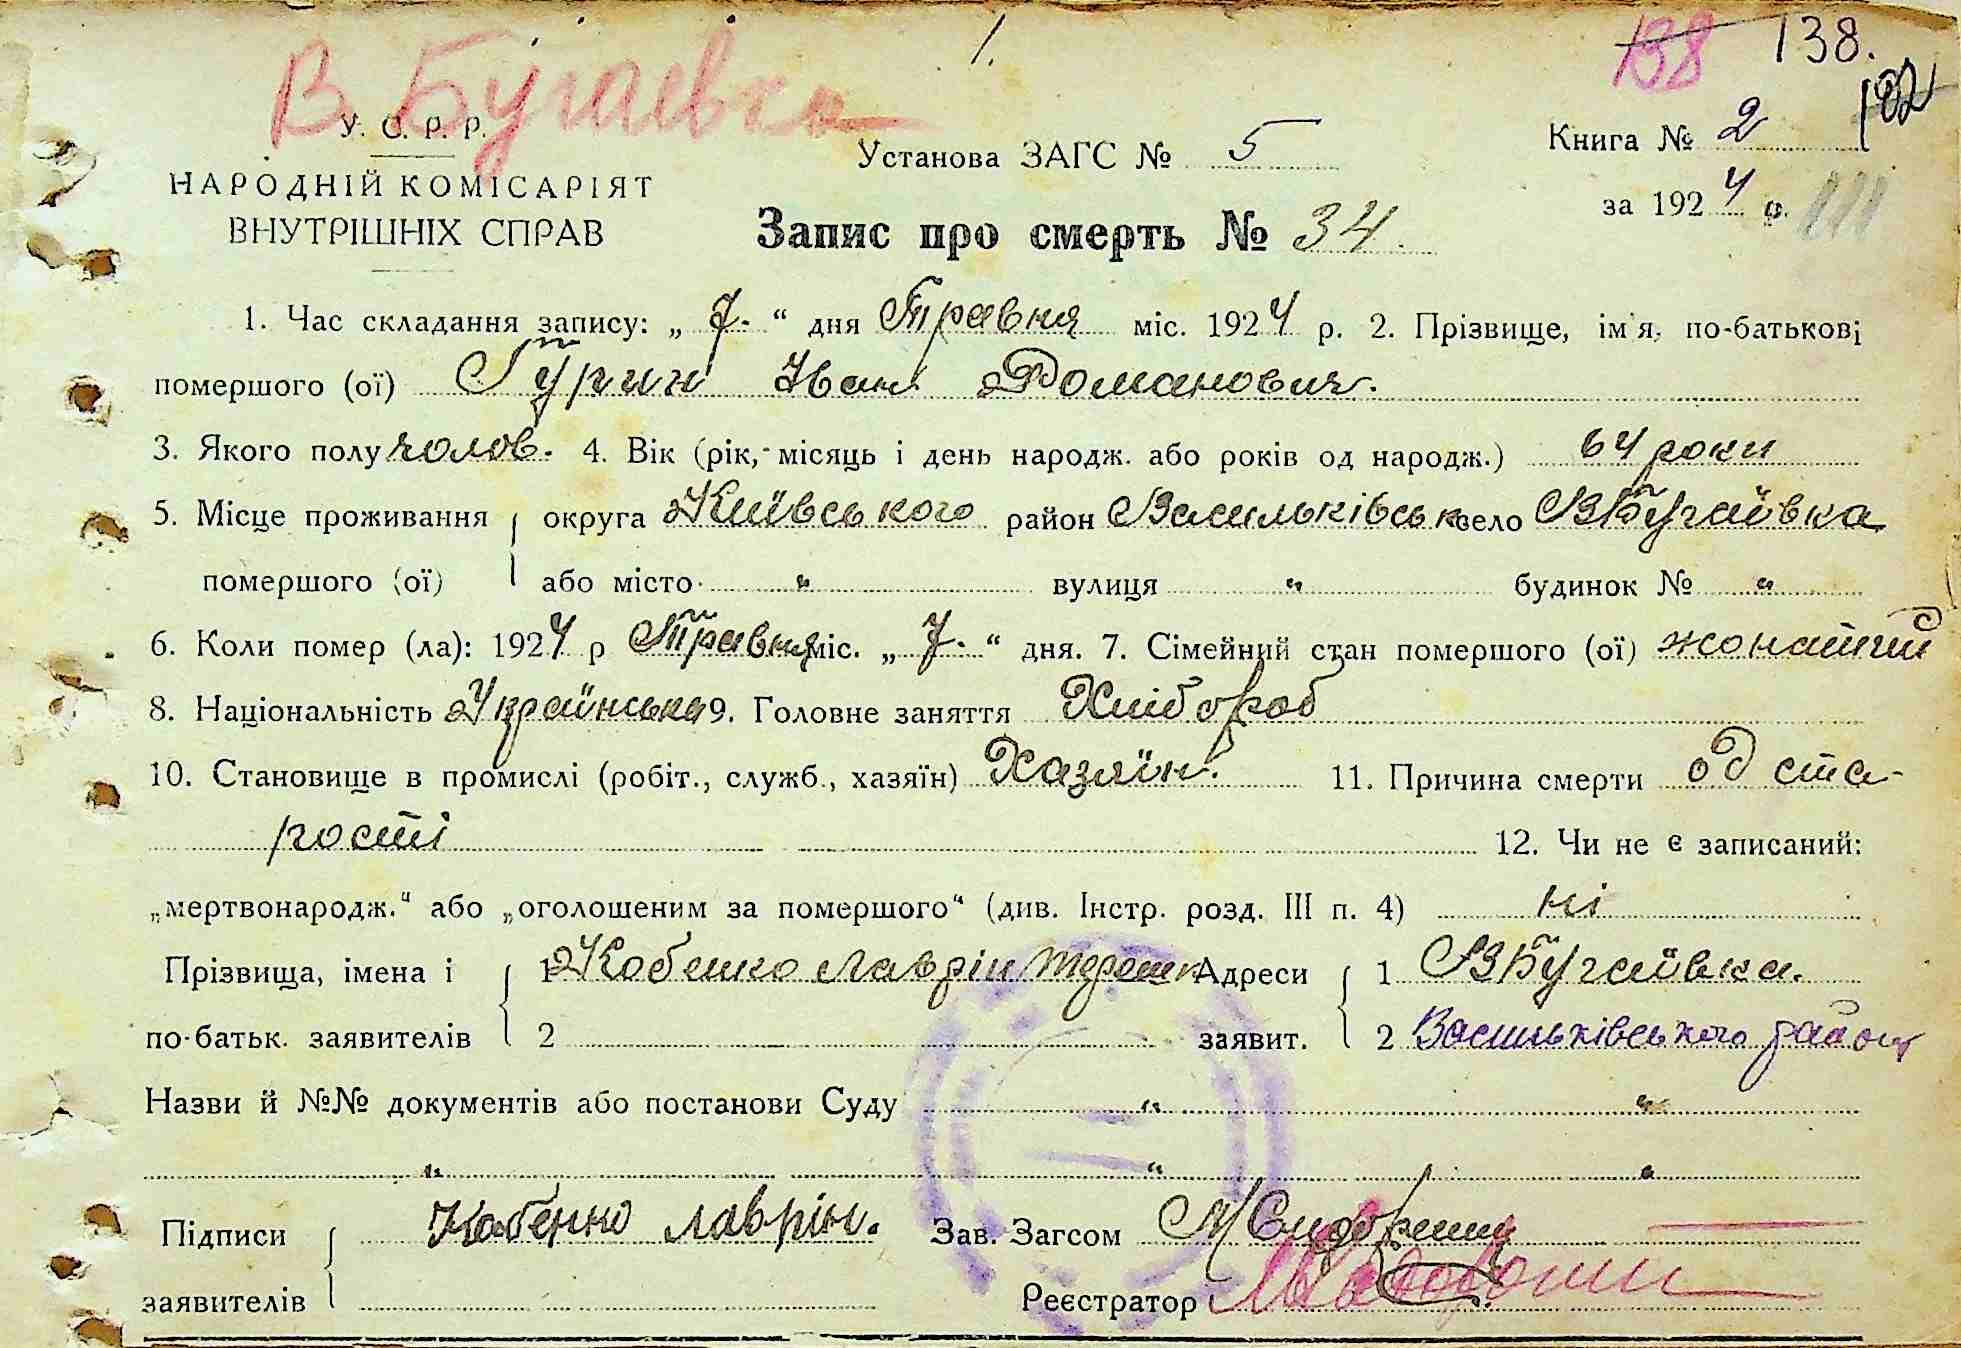 1.
138 138.
В. Бугаевка
102
У. С. Р. Р.
НАРОДНІЙ КОМІСАРІЯТ
ВНУТРІШНІХ СПРАВ
Установа ЗАГС № 5
Книга № 2
за 1924 р. 111
Запис про смерть № 34.
1. Час складання запису: „ 7. “ дня Травня міс. 1924 р. 2. Прізвище, ім'я, по-батькові
помершого (ої) Гурин Іван Романович.
3. Якого полу чолов. 4. Вік (рік, місяць і день народж. або років од народж.) 64 роки
5. Місце проживання округа Київського район Васильківськ село В Бугаївка
помершого (ої) або місто " вулиця " будинок № "
6. Коли помер (ла): 1924 р Травня міс. „ 7. “ дня. 7. Сімейний стан помершого (ої) жонатий
8. Національність Українська 9. Головне заняття Хлібороб
10. Становище в промислі (робіт., служб., хазяїн) Хазяїн. 11. Причина смерти од ста-
рості 12. Чи не є записаний:
„мертвонародж.“ або „оголошеним за помершого“ (див. Інстр. розд. III п. 4) ні
Прізвища, імена і 1 Кобенко Лаврін Адреси 1 В Бугаївка.
по-батьк. заявителів 2 заявит. 2 Васильківського району
Назви й №№ документів або постанови Суду " "
" " "
Підписи Кобенко Лаврін. Зав. Загсом
заявителів Реєстратор